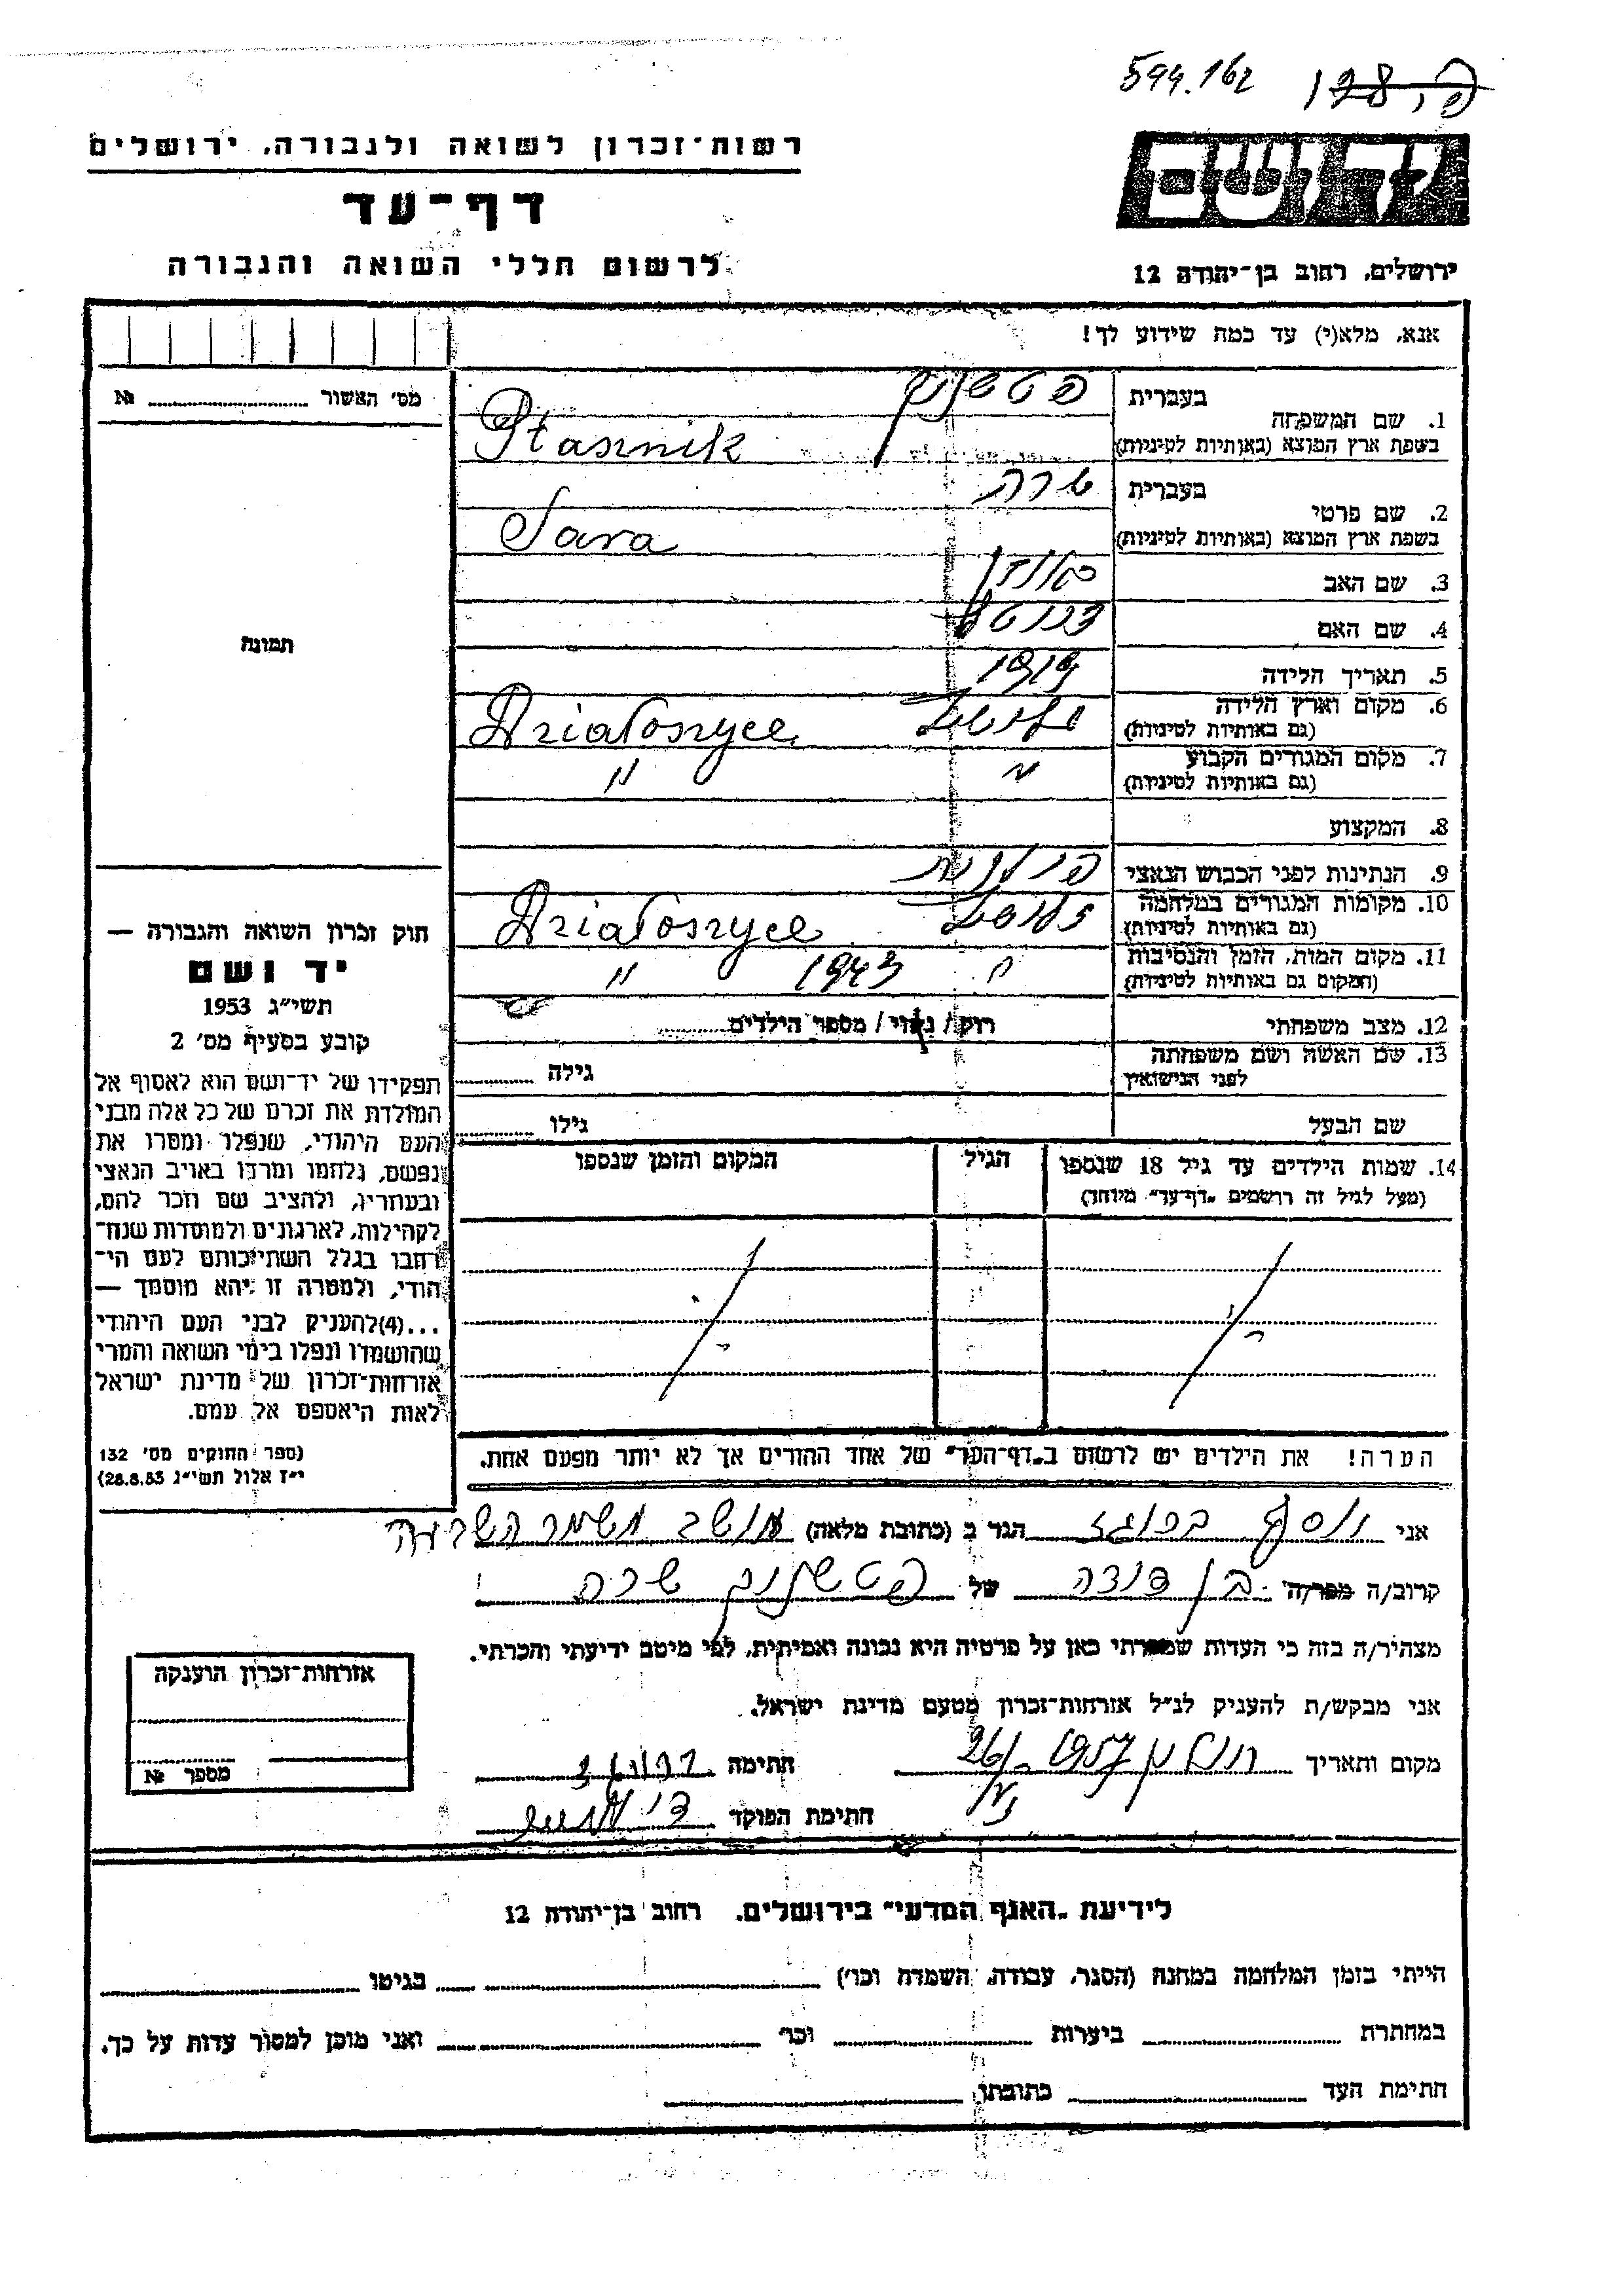 594.162
רשות־זכרון לשואה ולגבורה, ירושלים
דף־עד
לרשום חללי השואה והגבורה
יד ושם
ירושלים, רחוב בן־יהודה 12
אנא, מלא(י) עד כמה שידוע לך!
מס׳ האשור № 
1. שם המשפחה בעברית פטשניק
בשפת ארץ המוצא (באותיות לטיניות) Ptasznik
2. שם פרטי בעברית שרה
בשפת ארץ המוצא (באותיות לטיניות) Sara
3. שם האב
4. שם האם
5. תאריך הלידה 1919
6. מקום וארץ הלידה
(גם באותיות לטיניות) Działoszyce
7. מקום המגורים הקבוע
(גם באותיות לטיניות) "
8. המקצוע
9. הנתינות לפני הכבוש הנאצי פולנית
10. מקומות המגורים במלחמה
(גם באותיות לטיניות) Działoszyce
11. מקום המות, הזמן והנסיבות
(המקום גם באותיות לטיניות) " 1943 "
12. מצב משפחתי רוק / נשוי / מספר הילדים
13. שם האשה ושם משפחתה
לפני הנישואין גילה
שם הבעל גילו
14. שמות הילדים עד גיל 18 שנספו הגיל המקום והזמן שנספו
(מעל לגיל זה רושמים „דף־עד” מיוחד)
הערה! את הילדים יש לרשום ב„דף־העד” של אחד ההורים אך לא יותר מפעם אחת.
תמונה
חוק זכרון השואה והגבורה —
יד ושם
תשי״ג 1953
קובע בסעיף מס׳ 2
תפקידו של יד־ושם הוא לאסוף אל
המולדת את זכרם של כל אלה מבני
העם היהודי, שנפלו ומסרו את
נפשם, נלחמו ומרדו באויב הנאצי
ובעוזריו, ולהציב שם וזכר להם,
לקהילות, לארגונים ולמוסדות שנח־
רבו בגלל השתייכותם לעם הי־
הודי, ולמטרה זו יהא מוסמך —
...(4)להעניק לבני העם היהודי
שהושמדו ונפלו בימי השואה והמרי
אזרחות־זכרון של מדינת ישראל
לאות היאספם אל עמם.
(ספר החוקים מס׳ 132
י״ז אלול תשי״ג 28.8.53)
אני יוסף הגר ב (כתובת מלאה) מושב משמר השבעה
קרוב/ה מפר/ה בן דודה של פטשניק שרה
מצהיר/ה בזה כי העדות שמסרתי כאן על פרטיה היא נכונה ואמיתית, לפי מיטב ידיעתי והכרתי.
אני מבקש/ת להעניק לנ״ל אזרחות־זכרון מטעם מדינת ישראל.
מקום ותאריך חולון 1957 חתימה
חתימת הפוקד
אזרחות־זכרון הוענקה
מספר №
לידיעת „האגף המדעי” בירושלים, רחוב בן־יהודה 12
הייתי בזמן המלחמה במחנה (הסגר, עבודה, השמדה וכו׳) בגיטו
במחתרת ביערות וכו׳ ואני מוכן למסור עדות על כך.
חתימת העד כתובתו